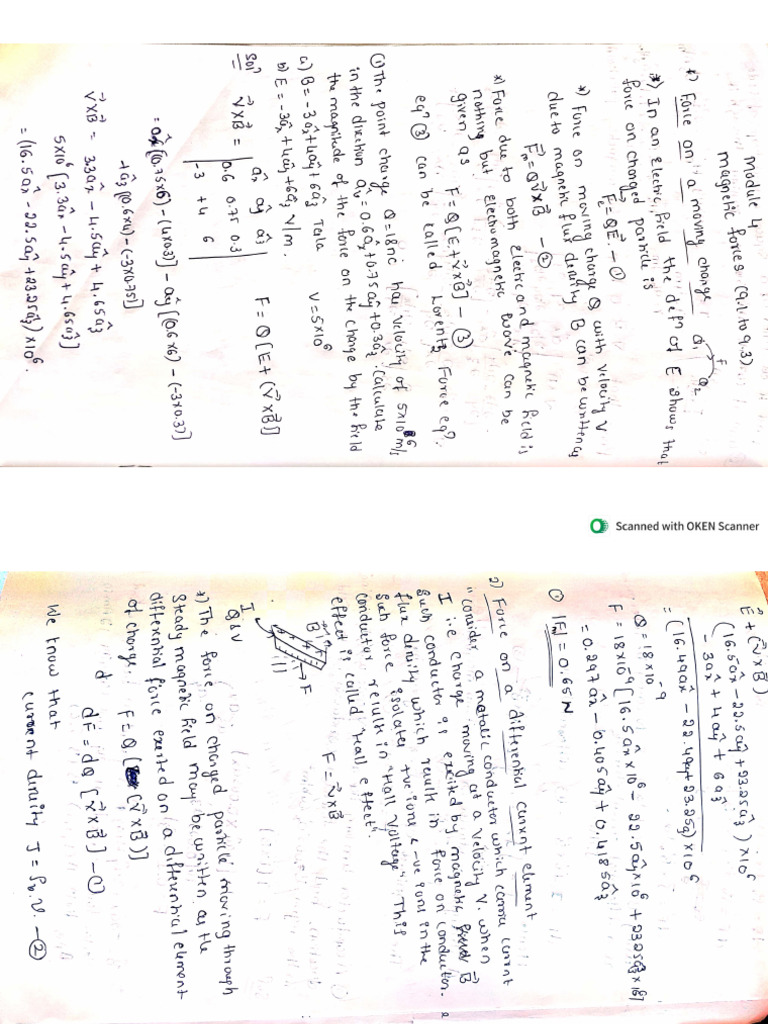 module 4
magnetic forces (9.1 to 9.3)
*) Force on a moving charge
Q1 F Q2
*) In an Electric field the defn of E shows that
force on charged particle is
Fe = QE⃗ — ①
*) Force on moving charge Q with velocity V
due to magnetic flux density B can be written as
F⃗m = QV⃗×B⃗ — ②
*) Force due to both electric and magnetic field is
nothing but Electromagnetic wave can be
given as F = Q[E+V⃗×B⃗] — ③
eqn ③ can be called Lorentz Force eqn.
① The point charge Q=18nc has velocity of 5×10^6 m/s
in the direction âv = 0.6âx+0.75ây+0.3âz. calculate
the magnitude of the force on the charge by the field
a) B = -3âx+4ây+6âz Tesla V=5×10^6
b) E = -3âx+4ây+6âz V/m.
Soln V⃗×B⃗ = | âx ây âz | F = Q[E+(V⃗×B⃗)]
0.6 0.75 0.3
-3 +4 6
= âx[(0.75×6)-(4×0.3)] - ây[(0.6×6)-(-3×0.3)]
+âz[(0.6×4)-(-3×0.75)]
V⃗×B⃗ = 3.3âx - 4.5ây + 4.65âz
5×10^6 [3.3âx - 4.5ây + 4.65âz]
= (16.5âx - 22.5ây + 23.25âz)×10^6.
Scanned with OKEN Scanner
E⃗+(V⃗×B⃗)
(16.5âx - 22.5ây + 23.25âz)×10^6
- 3âx + 4ây + 6âz
= (16.49âx - 22.49ây+23.25âz)×10^6
Q = 18×10^-9
F = 18×10^-9 [16.5âx×10^6 - 22.5ây×10^6 + 23.25âz×10^6]
= 0.297âx - 0.405ây + 0.4185âz
① |F| = 0.65N
2) Force on a differential current element
"consider a metalic conductor which carries current
I i.e charge moving at a velocity V. when
such conductor is excited by magnetic B⃗
flux density which result in force on conductor.
such force isolates +ve ions & -ve ions in the
conductor result in "Hall Voltage". This
effect is called "Hall effect".
F = V⃗×B⃗
B
F
I
Q ΔV
*) The force on charged particle moving through
steady magnetic field may be written as the
differential force exerted on a differential element
of charge. F = Q[(V⃗×B⃗)]
dF = dQ [V⃗×B⃗] — ①
We know that
current density J = ρv.V. — ②